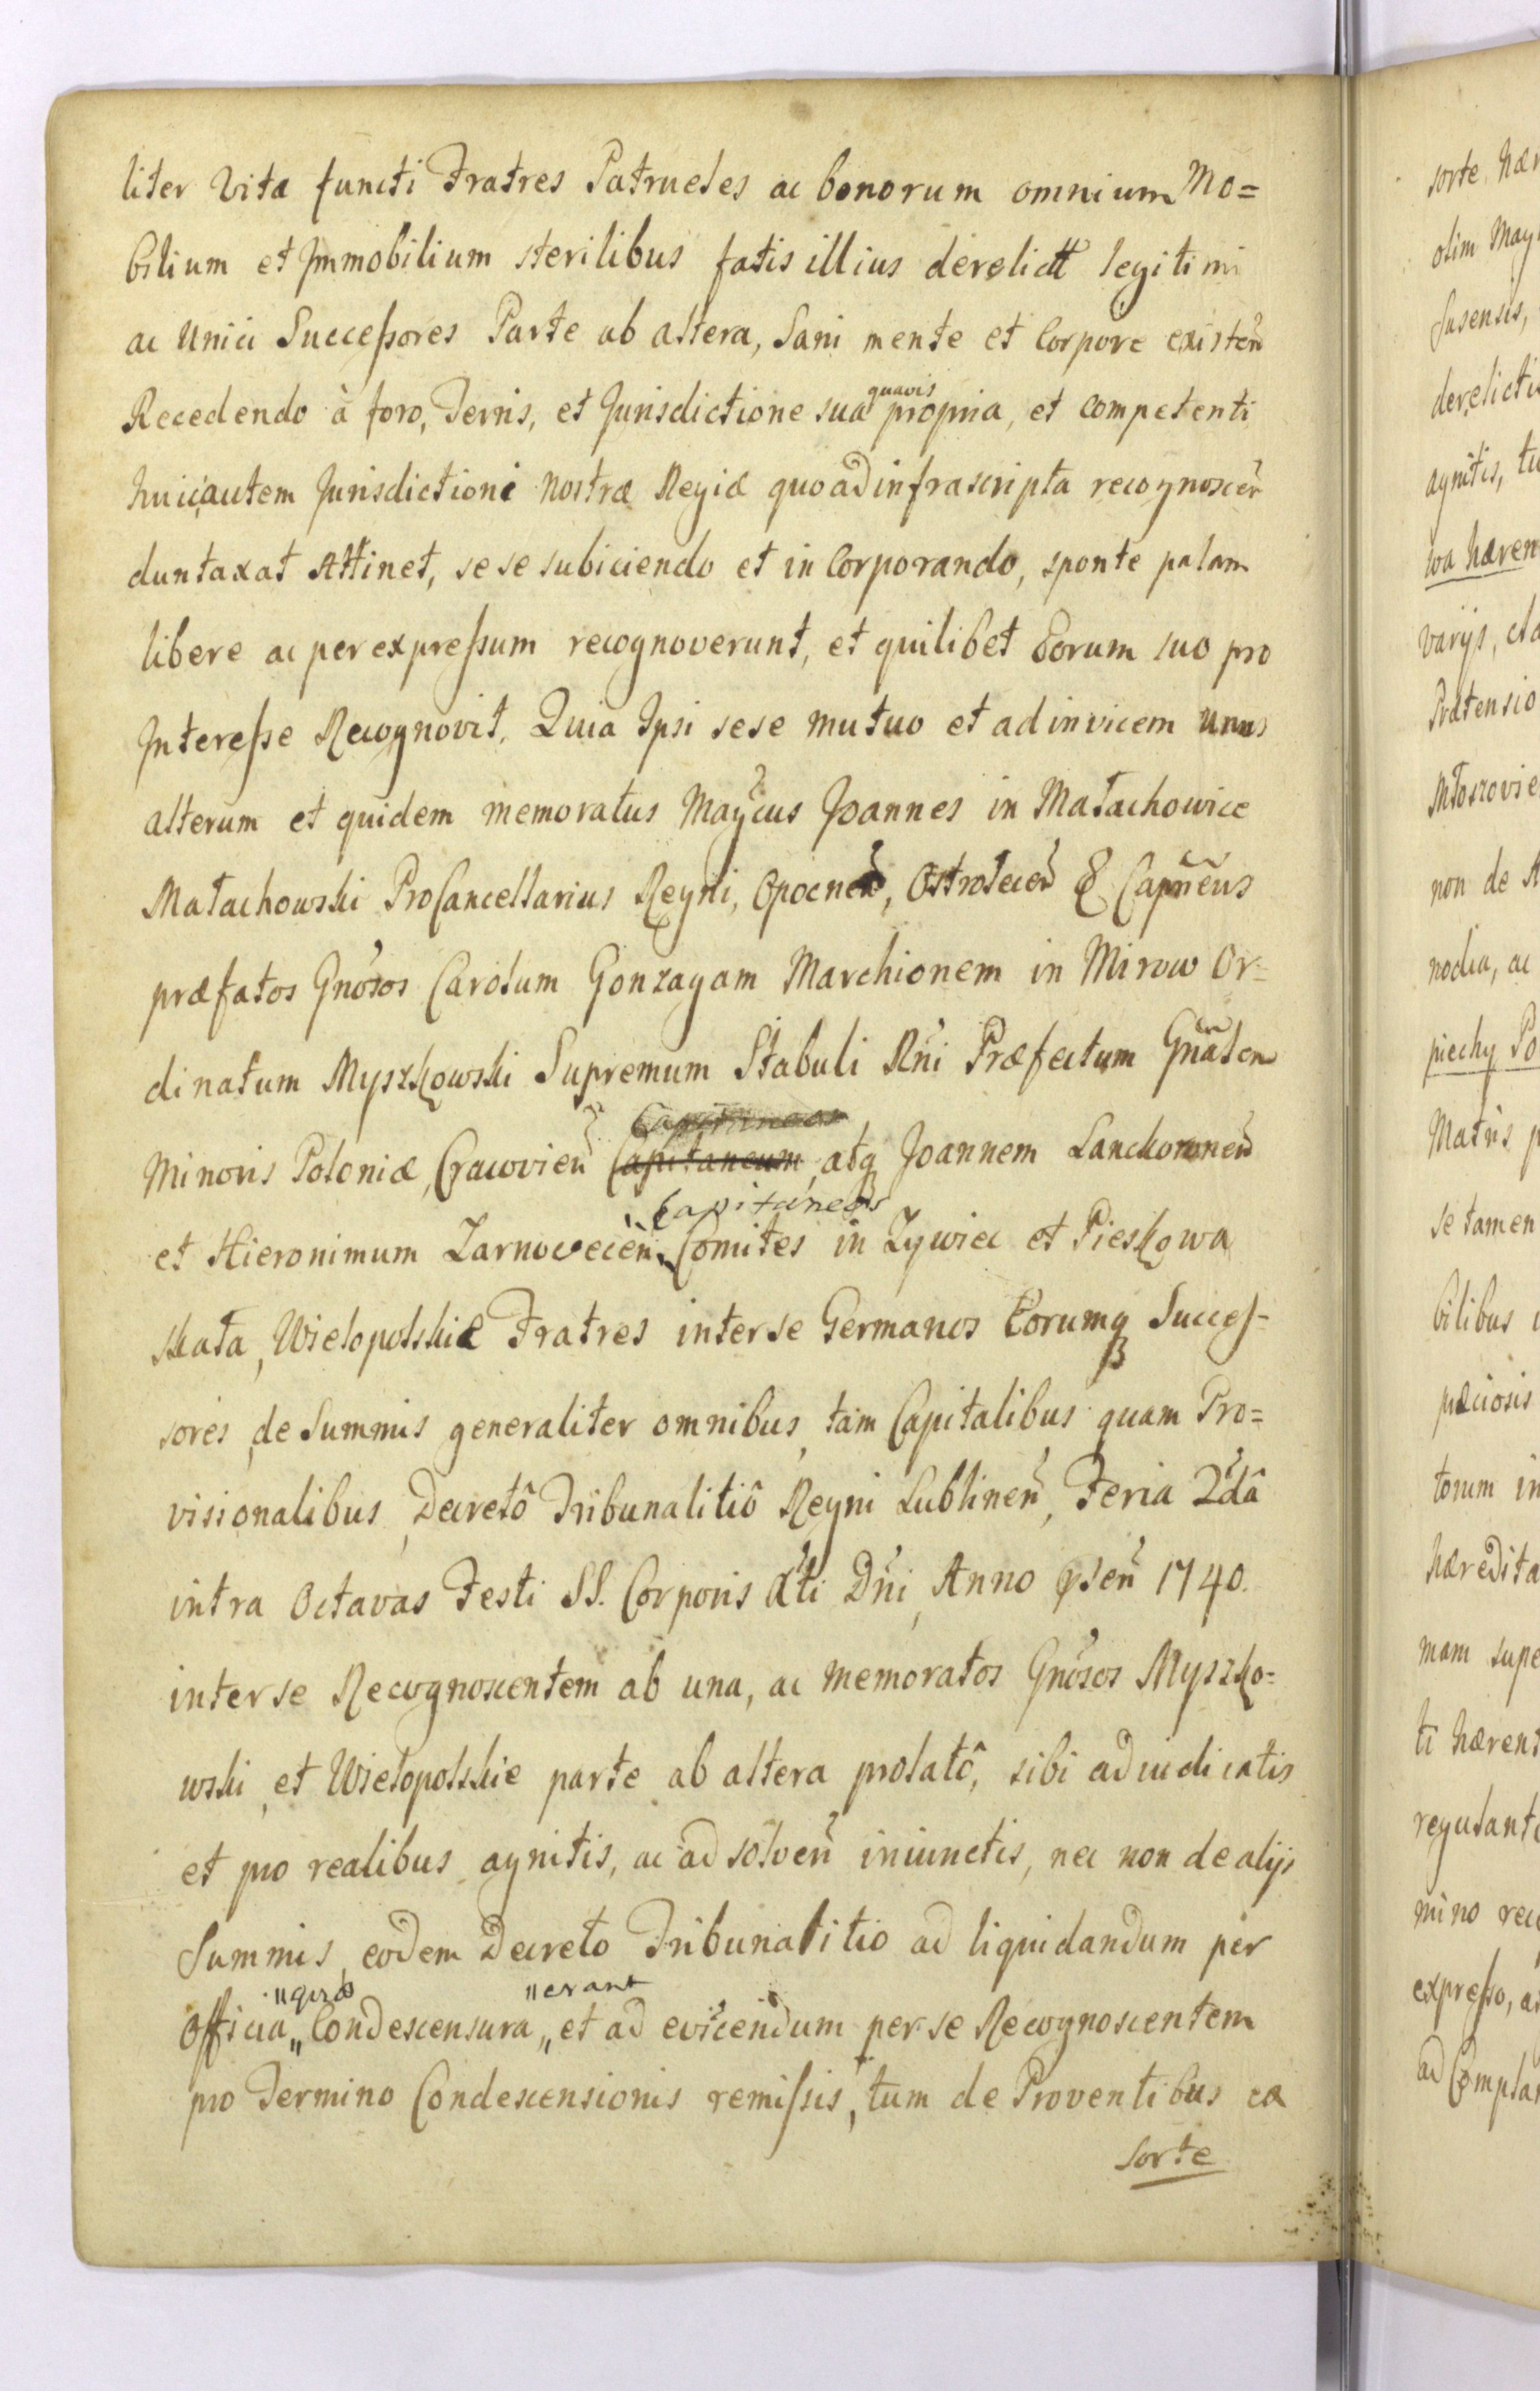 liter Vitæ functi Fratres Patrueles ac bonorum omnium Mo=
bilium et Immobilium sterilibus fatis illius derelictt legitimi
ac Unici Successores Parte ab altera, Sani mente et Corpore existen̄
quavis
Recedendo à foro, Terris, et Jurisdictione sua propria, et competenti
huic autem Jurisdictioni Nostræ Regiæ quo ad infrascripta recognoscen̄
duntaxat Attinet, se se subiciendo et in Corporando, sponte palam
libere ac per expressum recognoverunt, et quilibet Eorum suo pro
Interesse Recognovit. Quia Ipsi sese mutuo et ad invicem unus
alterum et quidem memoratus Mag̃cus Joannes in Małachowice
Małachowski ProCancellarius Regni, Opocnen̄, Ostrołecen̄ & Capñeus
præfatos Gnõsos Carolum Gonzagam Marchionem in Mirow Or=
dinatum Myszkowski Supremum Stabuli Rñi Præfectum Gñalem
Capitaneos
Minoris Poloniæ, Cracovien̄ Capitaneum, atq Joannem Lanckoronen̄
Capitaneos
et Hieronimum Zarnovecen̄ Comites in Zywiec et Pieskowa
skała, Wielopolskie Fratres inter se Germanos Eorumq Succes=
sores, de Summis generaliter omnibus, tam Capitalibus quam Pro=
visionalibus, Decretô Tribunalitiô Regni Lublinen̄, Feria 2dâ
intra Octavas Festi SS. Corporis Xti Dñi, Anno psen̄ 1740.
inter se Recognoscentem ab una, ac memoratos Gnõsos Myszko=
wski, et Wielopolskie parte ab altera prolatô, sibi adiudicatis
et pro realibus agnitis, ac ad solven̄ iniunctis, nec non de alijs
Summis, eodem Decreto Tribunalitio ad liquidandum per
"erant
Officia "Condescensura" et ad evincendum per se Recognoscentem
pro Termino Condescensionis remissis, tum de Proventibus ex
sorte
sorte hær
olim Mag
susensis,
derelicti
agnitis, tu
wa hæren
varijs, cla
Prætensio
non de A
nodia, ac
piechy Po
Matris p
se tamen
bilibus i
pæciosis
torum in
hæredita
mam supe
ti hærent
regulant
mino reco
expresso, a
ad Complan